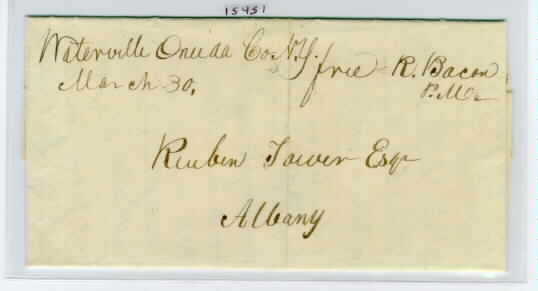 15451
Waterville Oneida Co. N.Y. free R. Bacon
March 30, P.M.
Reuben Tower Esqr
Albany